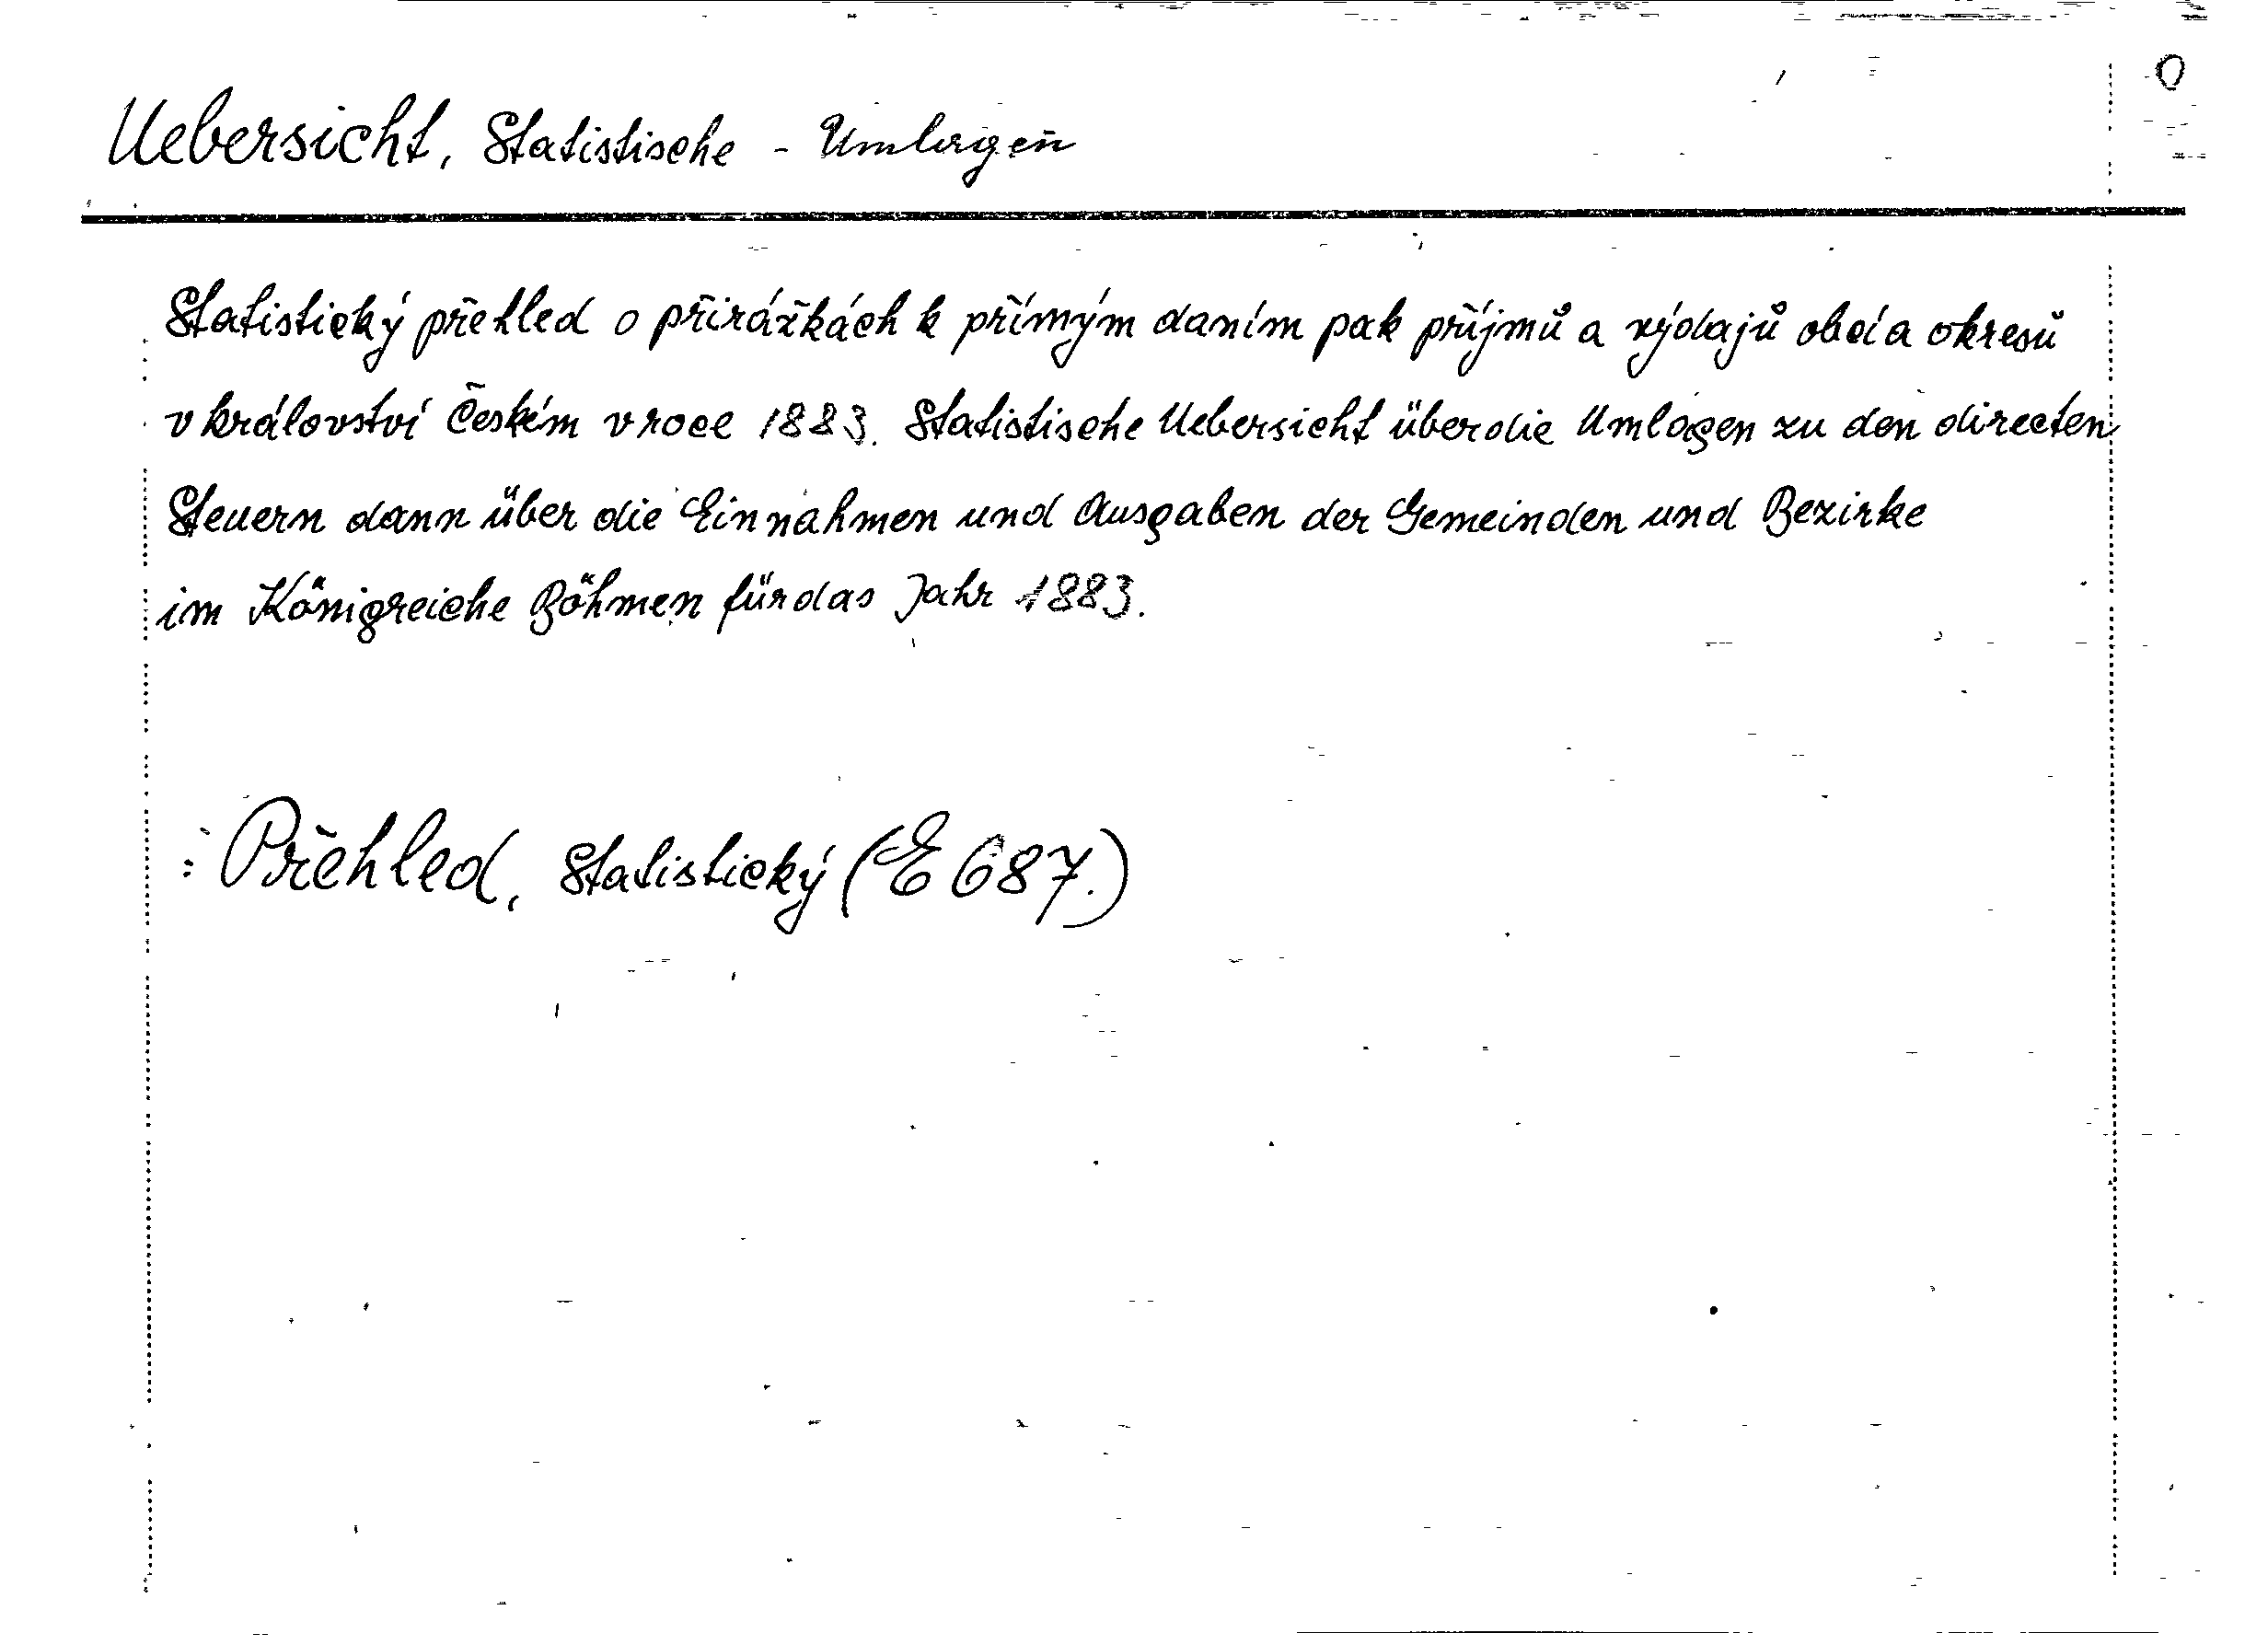 O
Uebersicht, Statistische - Umlagen
Statistický přehled o přirážkách k přímým daním pak příjmů a výdajů obcí a okresů
v království Českém v roce 1883. Statistische Uebersicht über die Umlagen zu den directen
Steuern dann über die Einnahmen und Ausgaben der Gemeinden und Bezirke
im Königreiche Böhmen für das Jahr 1883.
: Přehled, statistický (E 687.)